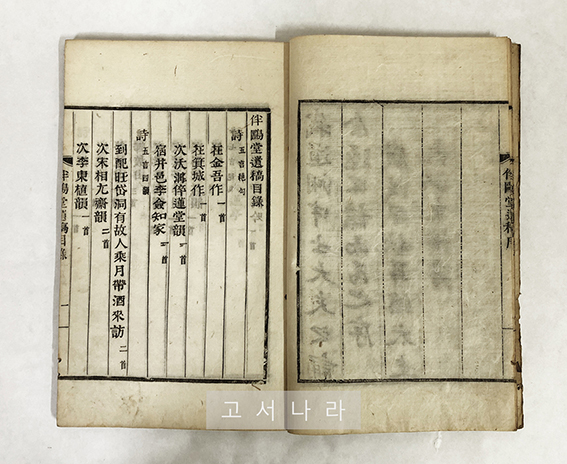 伴鷗堂遺稿序
伴鷗堂遺稿目錄
詩 五言絶句
在金吾作 一首
在箕城作 一首
次沃溝倅蓮堂韻 二首
宿井邑李僉知家 一首
詩 五言四韻
到配旺岱洞有故人乘月帶酒來訪 二首
次宋相尤齋韻 二首
次李東植韻 一首
伴鷗堂遺稿目錄 一
고서나라